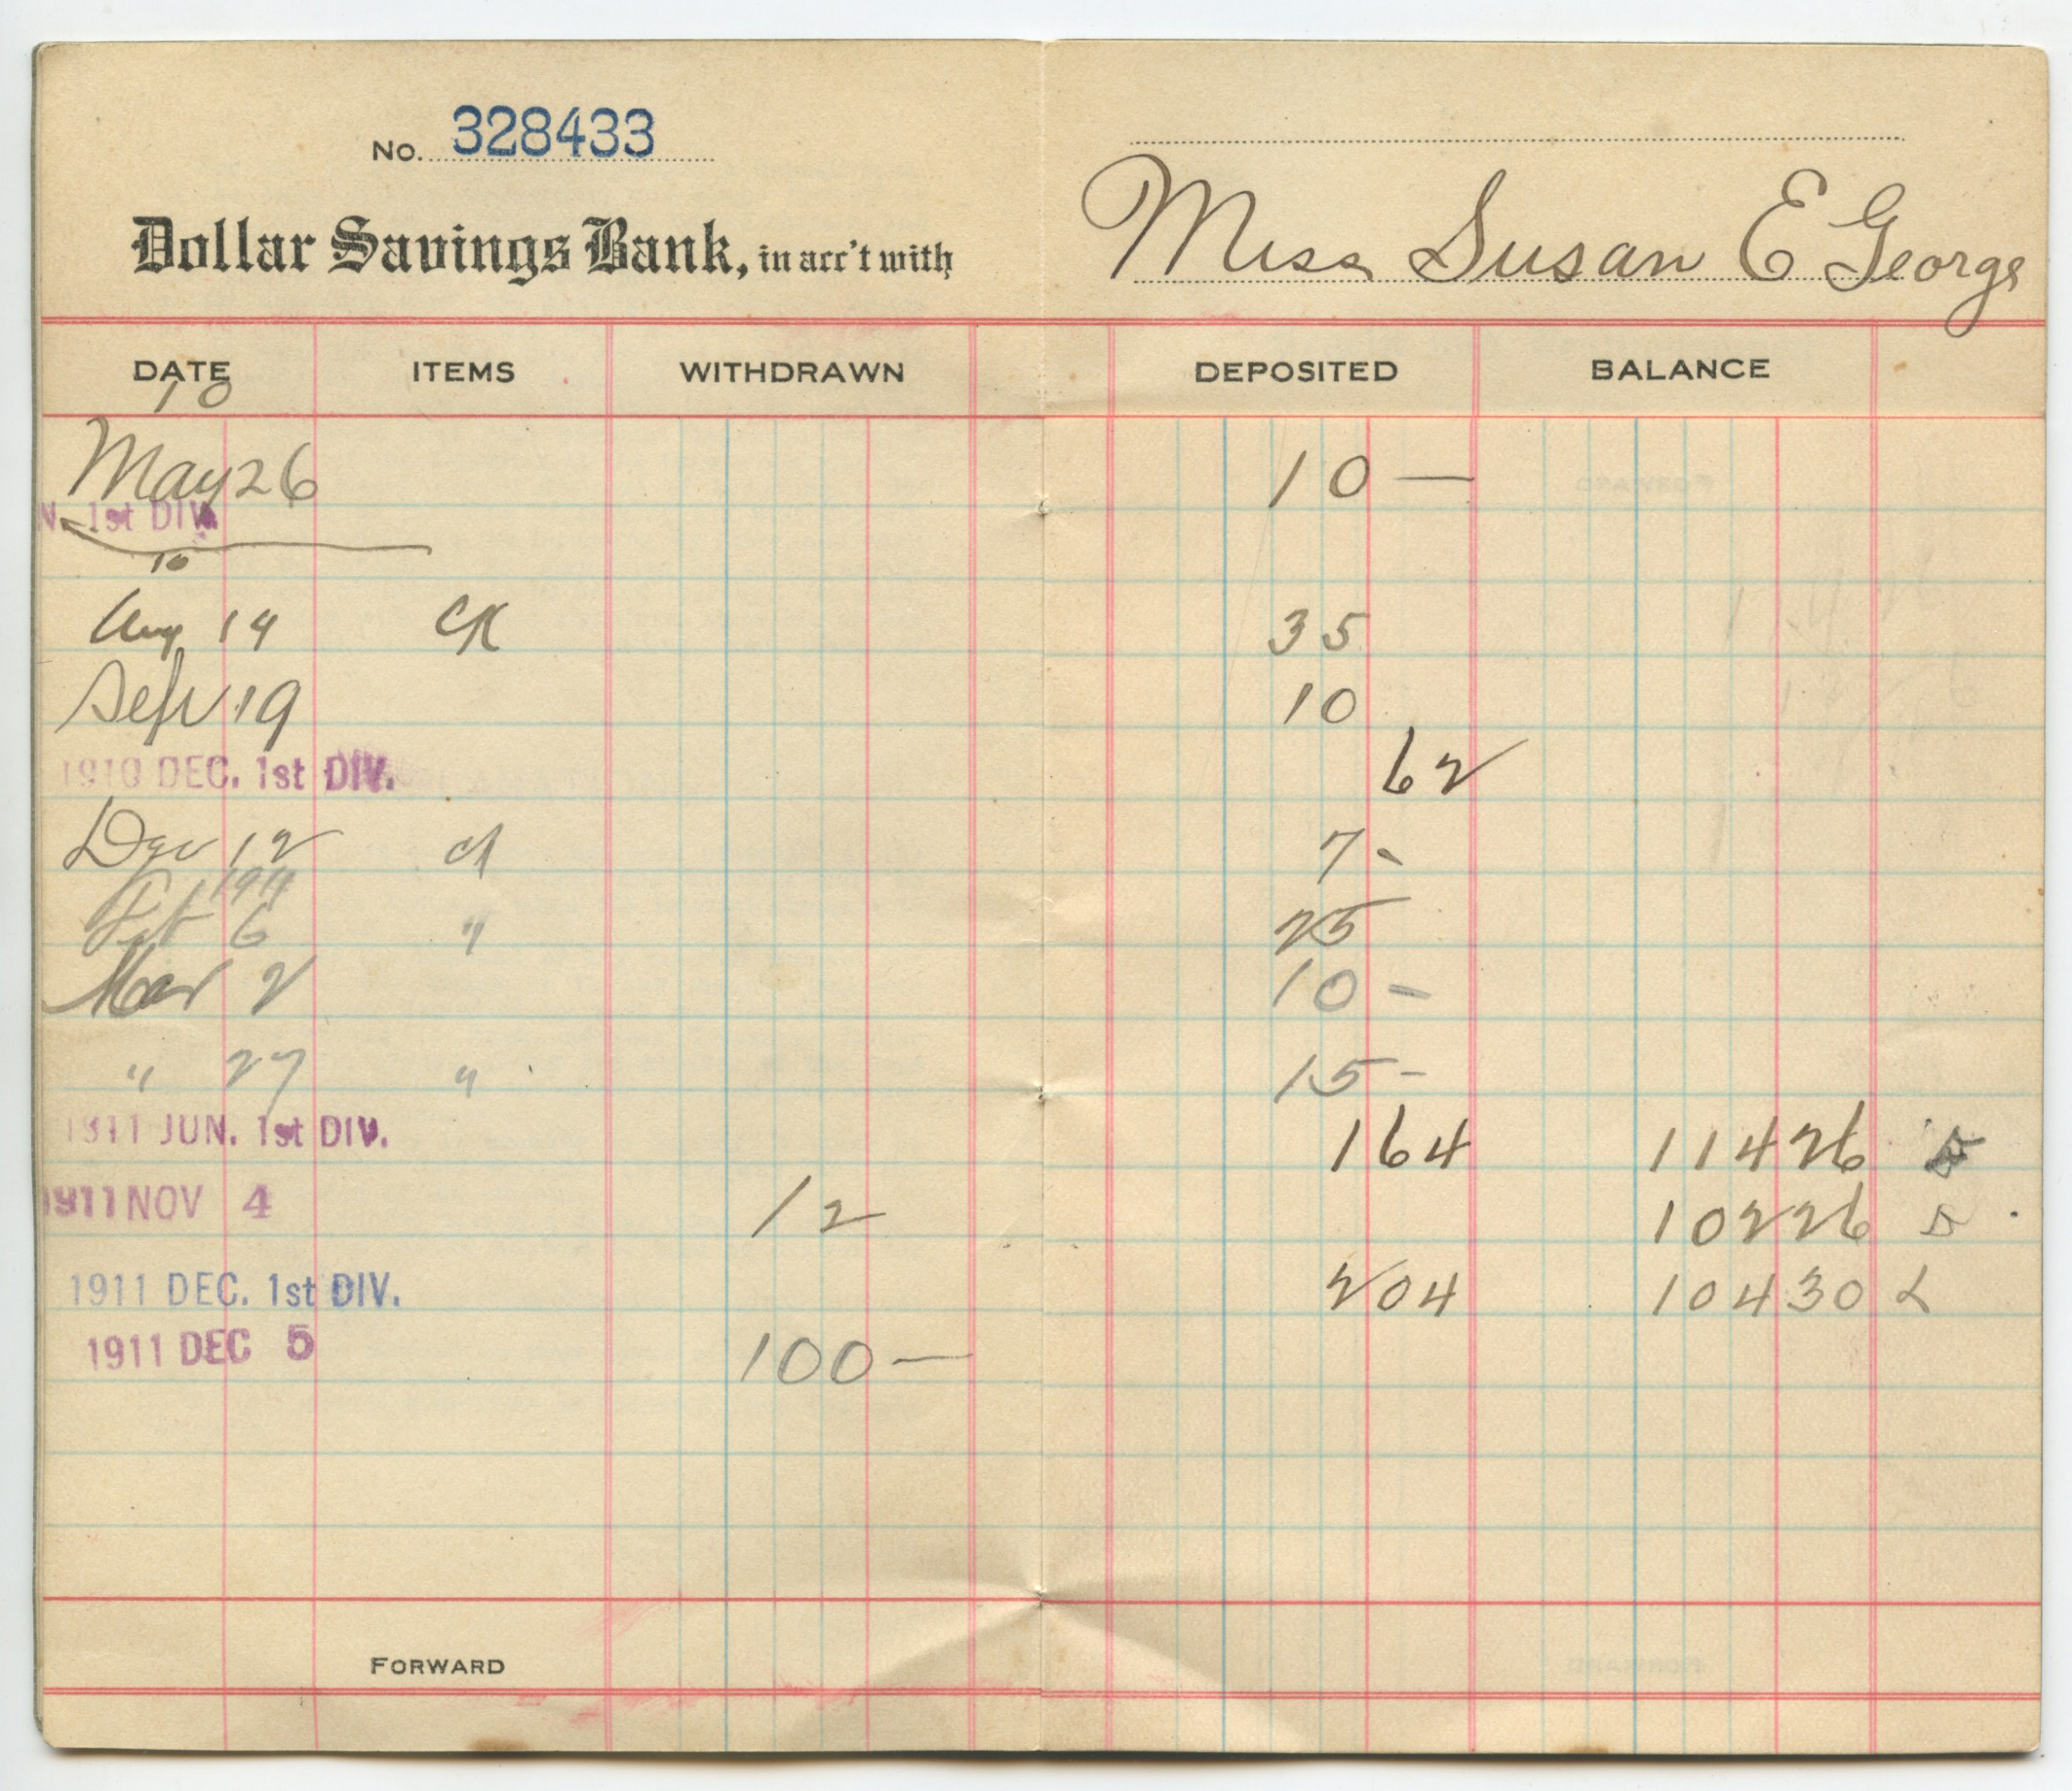 No. 328433
Dollar Savings Bank, in acc't with Miss Susan E George
DATE ITEMS WITHDRAWN DEPOSITED BALANCE
10
May 26 10 —
N. 1st DIV.
10
Aug 19 CK 35
Sep 19 10
1910 DEC. 1st DIV. 62
Dec 12 ck 7 -
1911
Feb 6 " 25
Mar 2 10 -
" 27 " 15 -
1911 JUN. 1st DIV. 164 11426
1911 NOV 4 12 10226
1911 DEC. 1st DIV. 204 10430
1911 DEC 5 100 —
FORWARD